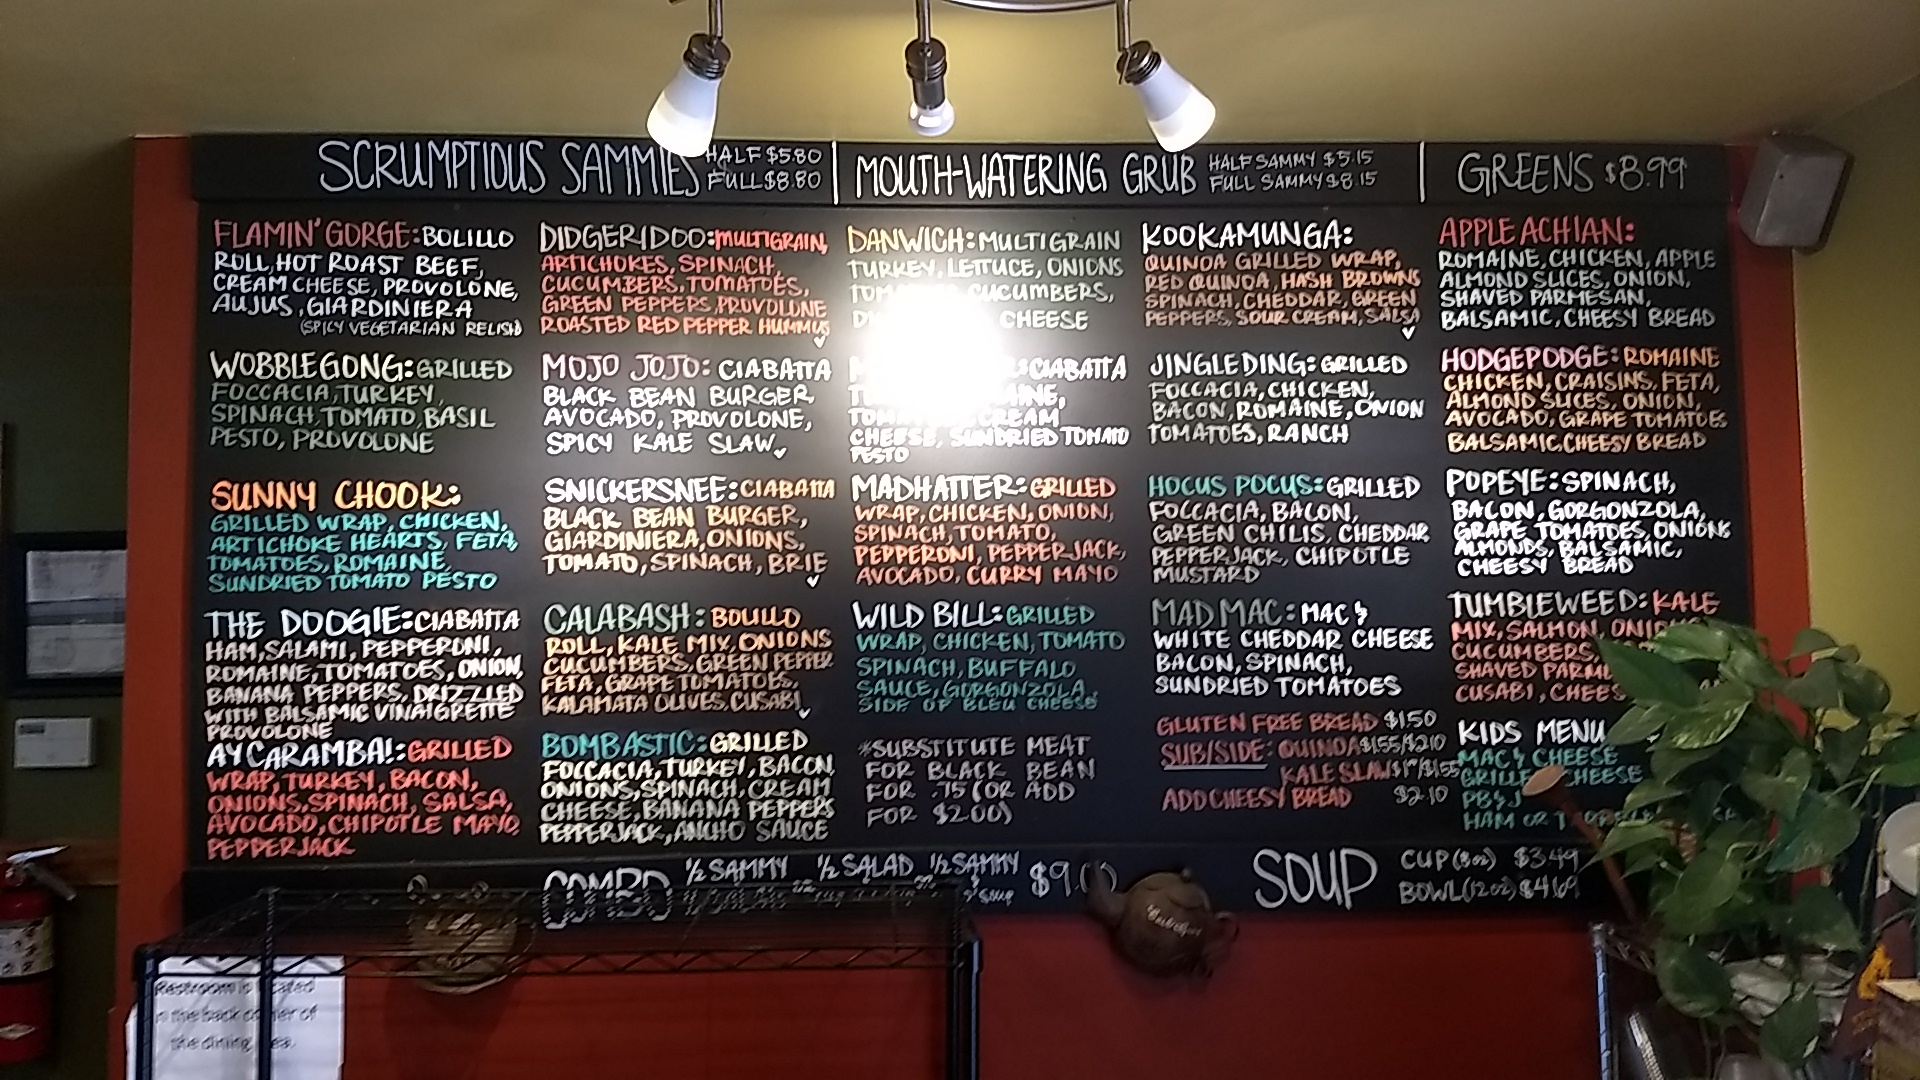 SCRUMPTIOUS SAMMIES
HALF $5.80
FULL $8.80
FLAMIN' GORGE: BOLILLO
ROLL, HOT ROAST BEEF,
CREAM CHEESE, PROVOLONE,
AUJUS, GIARDINIERA
(SPICY VEGETARIAN RELISH)
WOBBLEGONG: GRILLED
FOCCACIA, TURKEY,
SPINACH, TOMATO, BASIL
PESTO, PROVOLONE
SUNNY CHOOK:
GRILLED WRAP, CHICKEN,
ARTICHOKE HEARTS, FETA,
TOMATOES, ROMAINE,
SUNDRIED TOMATO PESTO
THE DOOGIE: CIABATTA
HAM, SALAMI, PEPPERONI,
ROMAINE, TOMATOES, ONION,
BANANA PEPPERS, DRIZZLED
WITH BALSAMIC VINAIGRETTE
PROVOLONE
AY CARAMBA!: GRILLED
WRAP, TURKEY, BACON,
ONIONS, SPINACH, SALSA,
AVOCADO, CHIPOTLE MAYO,
PEPPERJACK
DIDGERIDOO: MULTIGRAIN,
ARTICHOKES, SPINACH,
CUCUMBERS, TOMATOES,
GREEN PEPPERS, PROVOLONE
ROASTED RED PEPPER HUMMUS
MOJO JOJO: CIABATTA
BLACK BEAN BURGER,
AVOCADO, PROVOLONE,
SPICY KALE SLAW
SNICKERSNEE: CIABATTA
BLACK BEAN BURGER,
GIARDINIERA, ONIONS,
TOMATO, SPINACH, BRIE
CALABASH: BOLILLO
ROLL, KALE MIX, ONIONS
CUCUMBERS, GREEN PEPPER
FETA, GRAPE TOMATOES,
KALAMATA OLIVES, CUSABI
BOMBASTIC: GRILLED
FOCCACIA, TURKEY, BACON
ONIONS, SPINACH, CREAM
CHEESE, BANANA PEPPERS
PEPPERJACK, ANCHO SAUCE
MOUTH-WATERING GRUB
HALF SAMMY $5.15
FULL SAMMY $8.15
DANWICH: MULTIGRAIN
TURKEY, LETTUCE, ONIONS
CUCUMBERS,
CHEESE
CIABATTA
CREAM
CHEESE, SUNDRIED TOMATO
PESTO
MADHATTER: GRILLED
WRAP, CHICKEN, ONION,
SPINACH, TOMATO,
PEPPERONI, PEPPERJACK,
AVOCADO, CURRY MAYO
WILD BILL: GRILLED
WRAP, CHICKEN, TOMATO
SPINACH, BUFFALO
SAUCE, GORGONZOLA,
SIDE OF BLEU CHEESE
*SUBSTITUTE MEAT
FOR BLACK BEAN
FOR .75 (OR ADD
FOR $2.00)
KOOKAMUNGA:
QUINOA GRILLED WRAP,
RED QUINOA, HASH BROWNS
SPINACH, CHEDDAR, GREEN
PEPPERS, SOUR CREAM, SALSA
JINGLEDING: GRILLED
FOCCACIA, CHICKEN,
BACON, ROMAINE, ONION
TOMATOES, RANCH
HOCUS POCUS: GRILLED
FOCCACIA, BACON,
GREEN CHILIS, CHEDDAR
PEPPERJACK, CHIPOTLE
MUSTARD
MAD MAC: MAC &
WHITE CHEDDAR CHEESE
BACON, SPINACH,
SUNDRIED TOMATOES
GLUTEN FREE BREAD $1.50
SUB/SIDE: QUINOA $1.55/$2.10
KALE SLAW
ADD CHEESY BREAD $2.10
GREENS $8.99
APPLEACHIAN:
ROMAINE, CHICKEN, APPLE
ALMOND SLICES, ONION,
SHAVED PARMESAN,
BALSAMIC, CHEESY BREAD
HODGEPODGE: ROMAINE
CHICKEN, CRAISINS, FETA,
ALMOND SLICES, ONION,
AVOCADO, GRAPE TOMATOES
BALSAMIC, CHEESY BREAD
POPEYE: SPINACH,
BACON, GORGONZOLA,
GRAPE TOMATOES, ONIONS
ALMONDS, BALSAMIC,
CHEESY BREAD
TUMBLEWEED: KALE
MIX, SALMON, ONIONS
CUCUMBERS,
SHAVED
CUSABI,
KIDS MENU
MAC & CHEESE
GRILLED CHEESE
PB&J
HAM OR
COMBO
1/2 SAMMY 1/2 SALAD 1/2 SAMMY
SOUP
CUP (8oz) $3.49
BOWL (12oz) $4.69
Restroom is located
in the back corner of
the dining area.